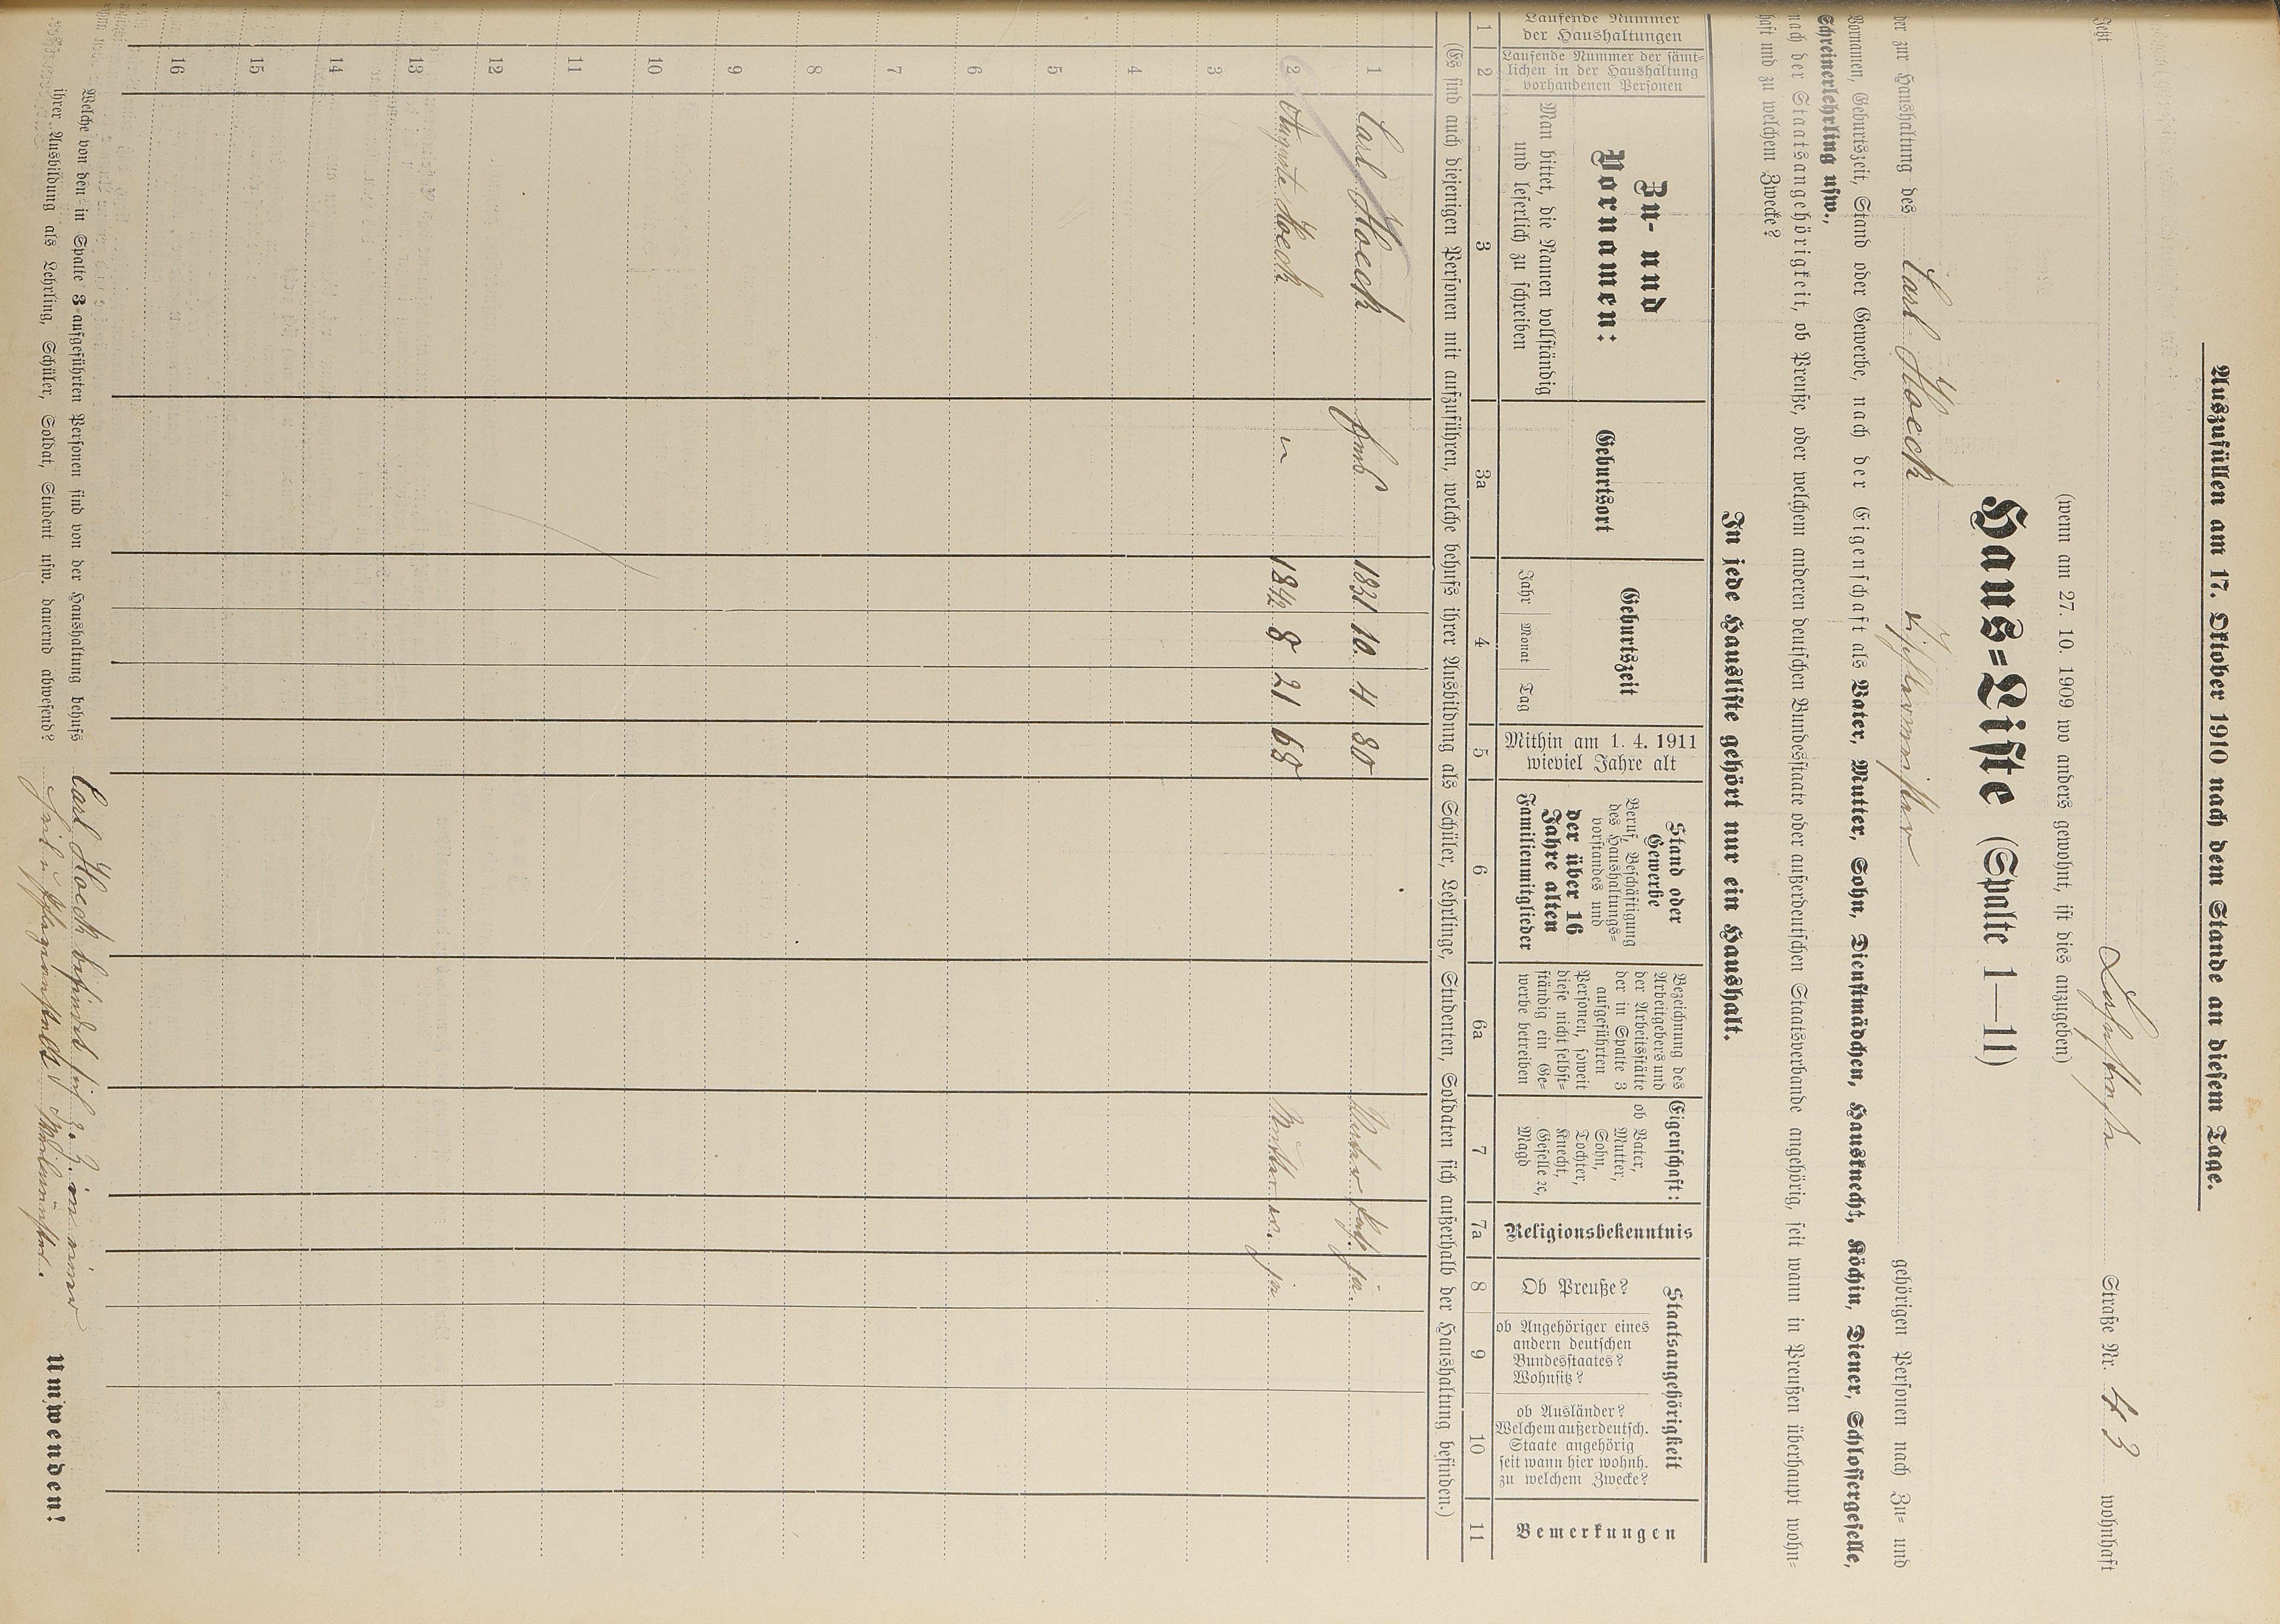 Auszufüllen am 17. Oktober 1910 nach dem Stande an diesem Tage.
Jetzt Straße Nr. 43 wohnhaft
(wenn am 27. 10. 1909 wo anders gewohnt, ist dies anzugeben)
Haus=Liste (Spalte 1—11)
der zur Haushaltung des Carl Hoeck gehörigen Personen nach Zu= und
Vornamen, Geburtszeit, Stand oder Gewerbe, nach der Eigenschaft als Vater, Mutter, Sohn, Dienstmädchen, Hausknecht, Köchin, Diener, Schlossergeselle,
Schreinerlehrling usw.,
nach der Staatsangehörigkeit, ob Preuße, oder welchen anderen deutschen Bundesstaate oder außerdeutschen Staatsverbande angehörig, seit wann in Preußen überhaupt wohn=
haft und zu welchem Zwecke?
In jede Hausliste gehört nur ein Haushalt.
Laufende Nummer
der Haushaltungen
Laufende Nummer der sämt=
lichen in der Haushaltung
vorhandenen Personen
Zu- und
Vornamen:
Man bittet, die Namen vollständig
und leserlich zu schreiben
Geburtsort
Geburtszeit
Jahr
Monat
Tag
Mithin am 1. 4. 1911
wieviel Jahre alt
Stand oder
Gewerbe
Beruf, Beschäftigung
des Haushaltungs=
vorstandes und
der über 16
Jahre alten
Familienmitglieder
Bezeichnung des
Arbeitgebers und
der Arbeitsstätte
der in Spalte 3
aufgeführten
Personen, soweit
diese nicht selbst=
ständig ein Ge=
werbe betreiben
Eigenschaft:
ob Vater,
Mutter,
Sohn,
Tochter,
Knecht,
Geselle ec,
Magd
Religionsbekenntnis
Staatsangehörigkeit
Ob Preuße?
ob Angehöriger eines
andern deutschen
Bundesstaates?
Wohnsitz?
ob Ausländer?
Welchem außerdeutsch.
Staate angehörig
seit wann hier wohnh.
zu welchem Zwecke?
Bemerkungen
1 2 3 3a 4 5 6 6a 7 7a 8 9 10 11
(Es sind auch diejenigen Personen mit aufzuführen, welche behufs ihrer Ausbildung als Schüler, Lehrlinge, Studenten, Soldaten sich außerhalb der Haushaltung befinden.)
1 Carl Hoeck 1831 10 4 80 Vater kath. ja
2 Auguste Hoeck " 1842 8 21 68 Mutter ja
3
4
5
6
7
8
9
10
11
12
13
14
15
16
Welche von den in Spalte 3 aufgeführten Personen sind von der Haushaltung behufs Carl Hoeck befindet sich z. Z. in einer
ihrer Ausbildung als Lehrling, Schüler, Soldat, Student usw. dauernd abwesend?
Umwenden!